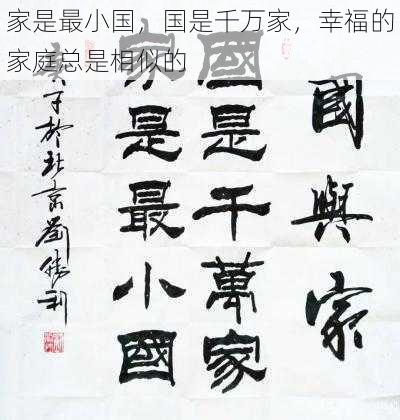 家是最小国，国是千万家，幸福的
家庭总是相似的
國與家
國是千萬家
家是最小國
子於北京劉勝利